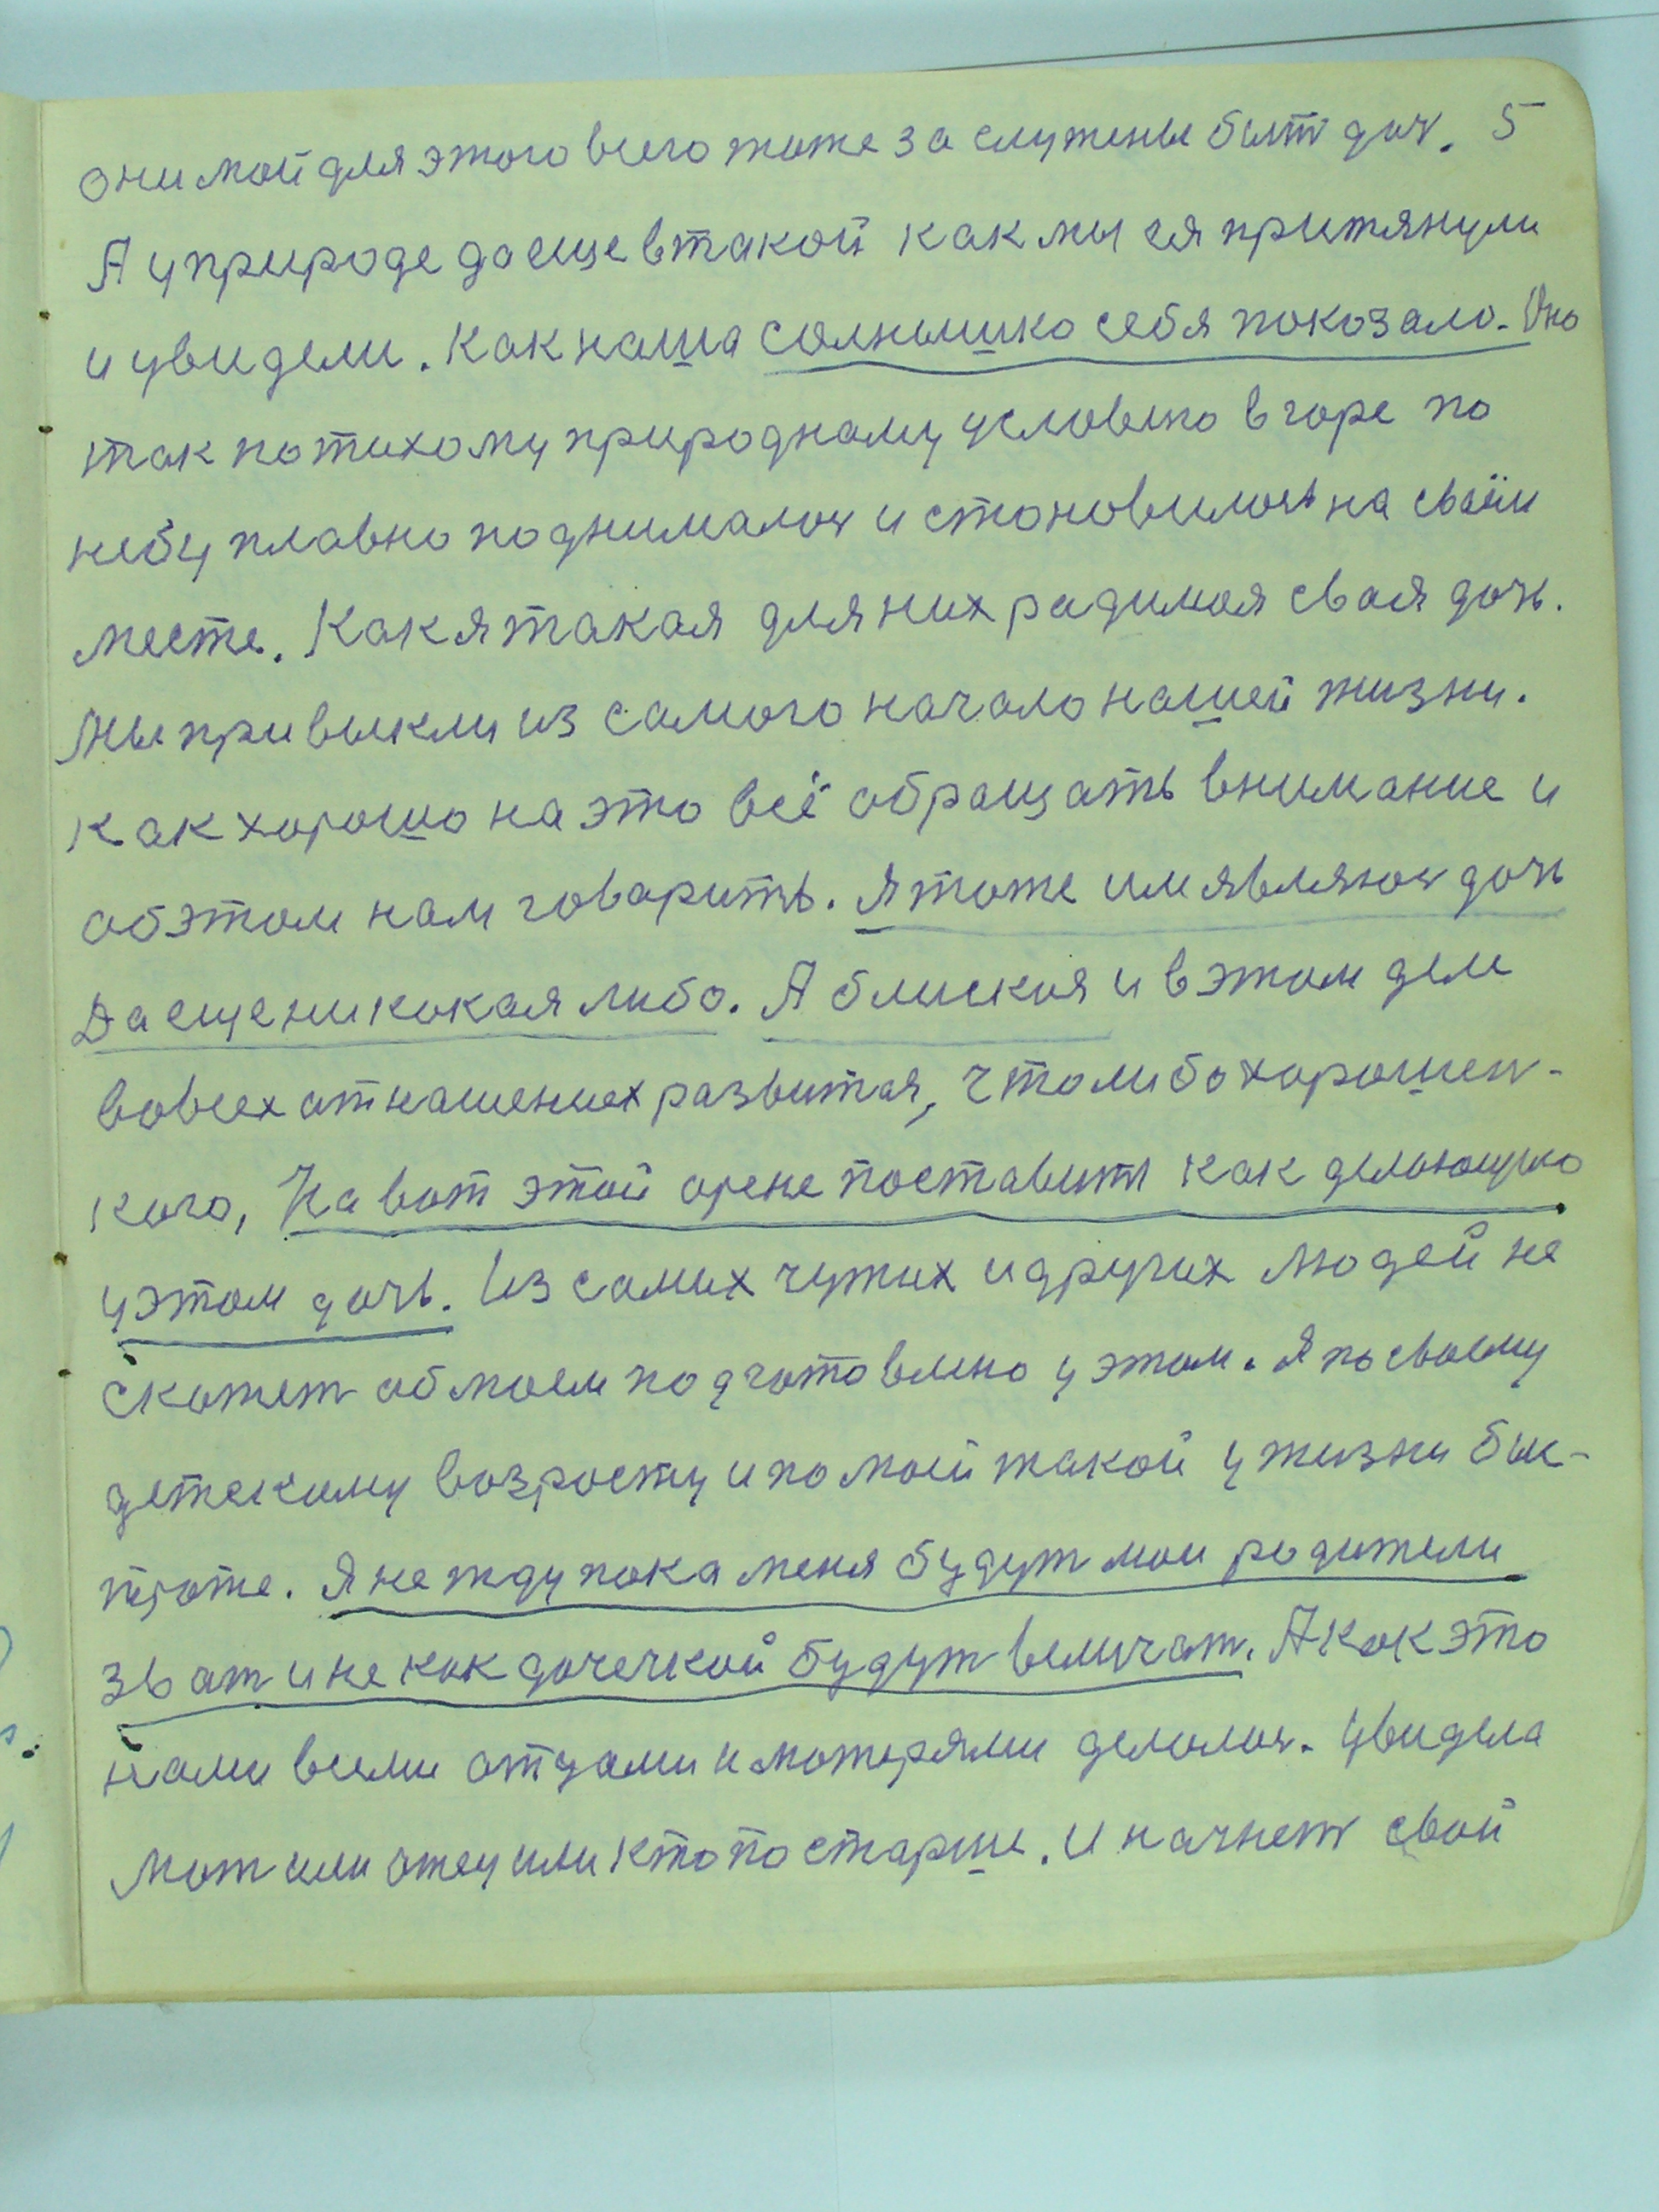 они мои для этого всего тоже заслужены быть доч. 5
А у природе да еще в такой как мы ея притянули
и увидели. Как наша солнышко себя показало. Оно
так по тихому природному условию в горе по
небу плавно поднималось и становилось на своём
месте. Как я такая для них радимая своя дочь.
Мы привыкли из самого начало нашей жизни.
как хорошо на это всё обращать внимание и
об этом нам говарить. Я тоже им являюсь дочь
Да еще ни какая либо. А блиская и в этом деле
во всех отнашениех развитая, что либо хорошень-
кого, На вот этой арене поставить как делающую
у этом дочь. Из самих чужих и других людей не
скажет об моем подготовлено у этом. Я по своему
детскому возрасту и по моей такой у жизни быс-
троте. Я не жду пока меня будут мои родители
зват и не как дочечкой будут величат. А как это
нами всеми отцами и матерями делалось. Увидела
мать или отец или кто по старше. И начнет свой